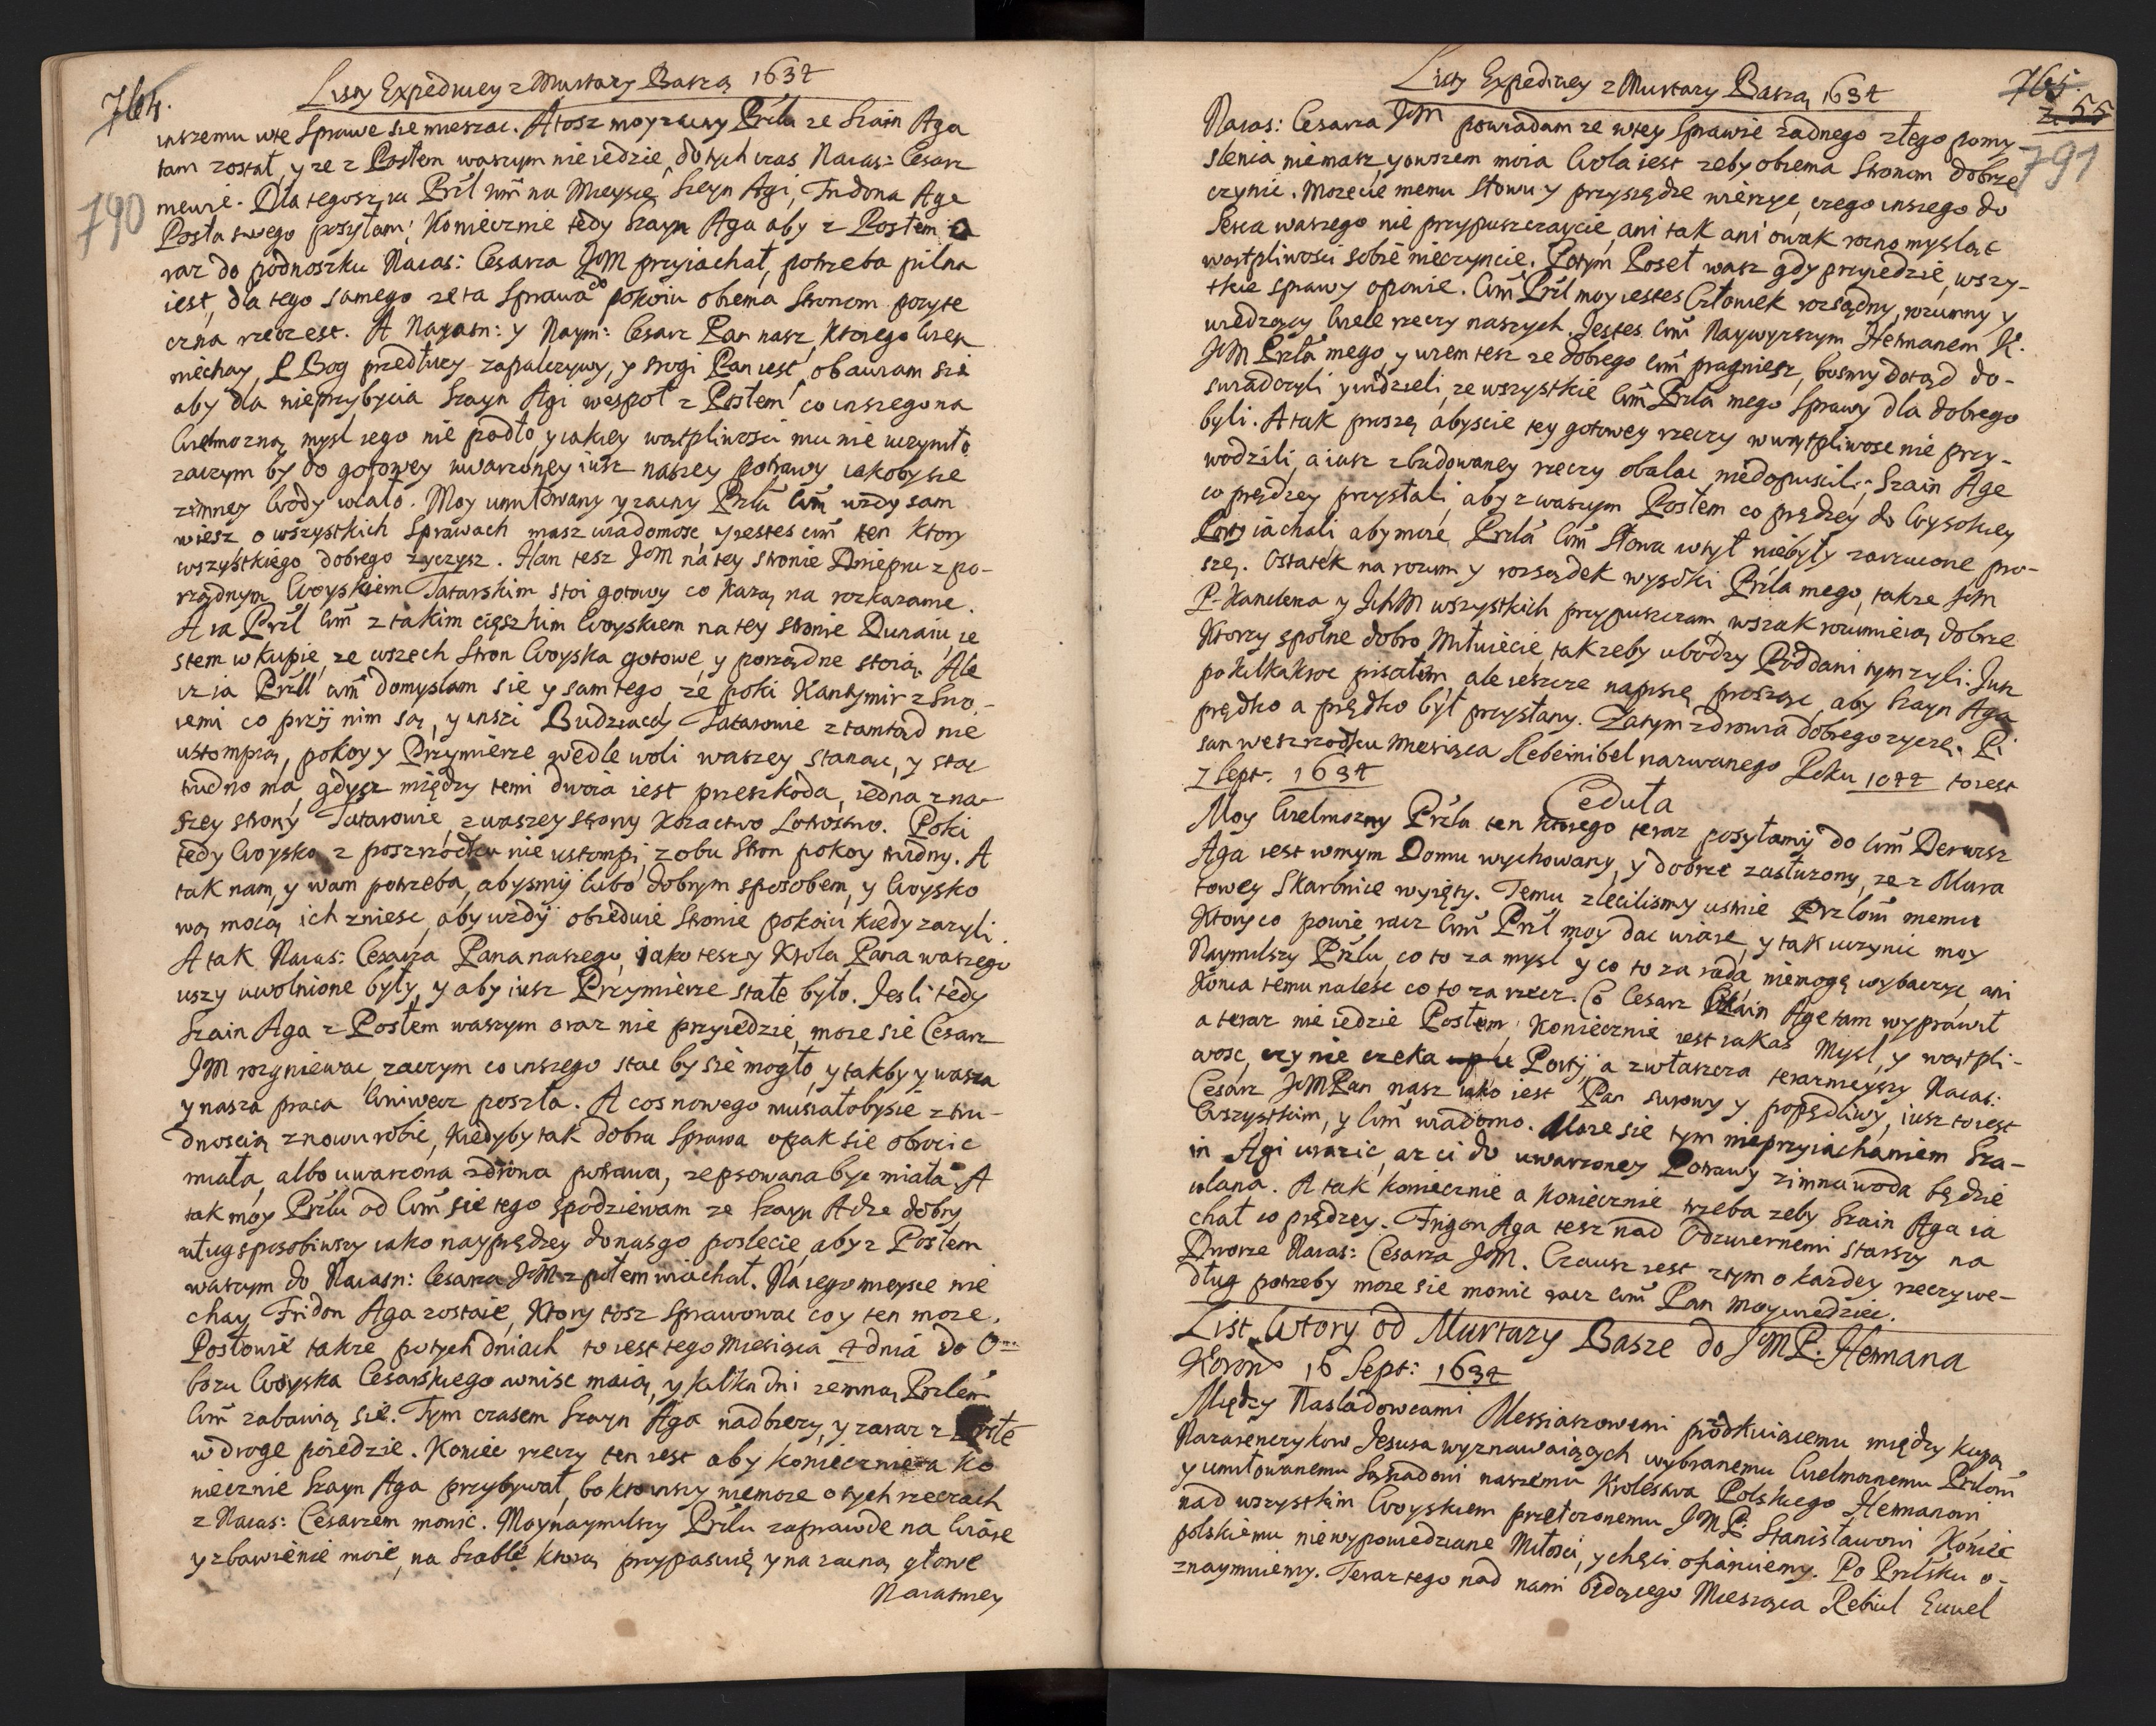 764.
790
Listy Expedicyey z Murtazy Baszą 1634
inszemu wtę Sprawę się mieszac. A tosz moy zacny Przlu ze Szain Aga
tam został, y ze z Posłem waszym nie iedzie, do tych czas Naias: Cesarz
niewie. Dla tegosz ia Przl Wm̃ na Mieysce Szayn Agi, Fridona Agę
Posła swego posyłam; Koniecznie tedy Szayn Aga aby z Posłem
raz do podnoszku Naias: Cesarza JeM przyiachał, potrzeba pilna
iest, dla tego samego ze ta Sprawa do pokoiu obiema Stronom pozyte
czna rzecz est. A Nayasn: y Naym: Cesarz Pan nasz, Ktorego Wiek
niechay P Bog przedłuzy zapalczywy, y srogi Pan iest, obawiam się
aby dla nieprzybycia Szayn Agi wespoł z Posłem co inszego na
Wielmozną mysl iego nie padło, y iakiey wątpliwosci mu nie uczyniło
zaczym by do gotowey uwarzoney iusz naszey potrawy iakoby sie
zimney Wody wlało. Moy umiłowany y zacny Przlu Wm̃ wzdy sam
wiesz o wszystkich Sprawach masz wiadomosc, y iestes wm̃ ten Ktory
wszystkiego dobrego zyczysz. Han tesz JeM na tey stronie Dniepru z po-
rządnym Woyskiem Tatarskim stoi gotowy co Kazą na rozkazanie.
A ia Przl Wm̃ z takim cięszkim Woyskiem na tey stronie Dunaiu ie
stem w kupie, ze wszech Stron Woyska gotowe, y porządne stoią. Ale
iz ia Przl wm̃ domyslam się y sam tego ze poki Kantymir z Swo-
iemi co przÿ nim są, y inszi Budziaccy Tatarowie ztamtąd nie
ustompią, pokoy y Przymierze wedle woli waszey stanąc, y stac
trudno ma, gdysz między temi dwoia iest przeszkoda, iedna z na-
szey strony Tatarowie, z waszey strony Kozactwo Łotrostwo. Poki
tedy Woysko z poszrodku nie ustompi, z obu Stron pokoy trudny. A
tak nam, y wam potrzeba, abysmÿ lubo dobrym sposobem, y Woysko
wą mocą ich zniesc, aby wzdÿ obiedwie Stronie pokoiu kiedy zazyli.
A tak Naias: Cesarza Pana naszego, iako tesz y Krola Pana waszego
uszy uwolnione były, y aby iusz Przymierze stałe było. Jesli tedy
Szain Aga z Posłem waszym oraz nie przyiedzie, moze sie Cesarz
JM rozgniewac, zaczym co inszego stac by sie mogło, y takby y wasza
y nasza praca Wniwecz poszła. A cos nowego musiałobysie z tru-
dnoscią znowu robic, kiedyby tak dobra Sprawa opak sie obrocic
miała, albo uwarzona zdrowa potrawa, zepsowana byc miała. A
tak moy Przlu od Wm̃ sie tego spodziewam ze Szayn Adze dobry
usług sposobiwszy iako nayprędzey do nas go poslecie, aby z Posłem
waszym do Naiasn: Cesarza JeM zpołem wiachał. Na iego mieysce nie
chay Fridon Aga zostaie, Ktory tosz sprawowac co y ten moze.
Posłowie takze po tych dniach to iest tego Miesiąca 4 dnia do O-
bozu Woyska Cesarskiego wnisc maią, y kilka dni zemną Przlem
Wm̃ zabawią się. Tym czasem Szayn Aga nadbiezy, y zaraz z Posłe
w drogę poiedzie. Koniec rzeczy ten iest aby koniecznie a ko
niecznie Szayn Aga przybywał, bo kto inszy niemoze o tych rzeczach
z Naias: Cesarzem monic. Moy naymilszy Przlu zaprawde na Wiarę
y zbawienie moie, na Szablę którą przypasuię y na zacną głowę
Naiasniey
Listy Expedicyey z Murtazy Baszą 1634
765.
791
Naias: Cesarza JeM powiadam ze wtey Sprawie zadnego złego pomy
slenia niemasz, y owszem moia Wola iest zeby obiema Stronom dobrze
czynic. Mozecie memu Słowu y przysiędze wierzyc, czego inszego do
Serca waszego nie przypuszczaycie, ani tak ani owak rozno myslac
wątpliwosci sobie nieczyncie. Potym Poseł wasz gdy przyiedzie, wszy-
tkie sprawy oponie. Wm̃ Przl moy iestes Człowiek rozsądny, rozumny y
wiedzący Wiele rzeczy naszych. Jestes Wm̃ Naywyzszym Hetmanem K.
JeM Przla mego y wiem tesz ze dobrego wm̃ pragniesz, bosmy dotąd do-
swiadczyli y widzieli, ze wszystkie Wm̃ Przla mego Sprawy dla dobrego
byli. A tak proszę abyscie tey gotowey rzeczy w wątpliwosc nie przy-
wodzili, a iusz zbudowaney rzeczy obalac niedopuscili; Szain Agę
co prędzey przysłali, aby z waszym Posłem co prędzey do Wysokiey
Porty iachali aby moie Przla Wm̃ Słowa wtył niebyły zawrucone pro-
szę. Ostatek na rozum y rozsądek wysoki Przla mego, takze JeM
P. Kanclerza y IchM wszystkich przypuszczam wszak rozumieią dobrze
Ktorzy spolne dobro Miłuiecie, tak zeby ubodzy Poddani tym zyli. Jusz
po kilkakroc pisałem, ale ieszcze napiszę prosząc, aby Szayn Aga
prędko a prędko był przysłany. Zatym zdrowia dobrego zyczę. Pi
san weszrodku Miesiąca Rebeinibel nazwanego Roku 1044 to iest
7 Sept. 1634
Ceduła
Moy Wielmozny Przlu ten ktorego teraz posyłamy do Wm̃ Derwisz
Aga iest w mym Domu wychowany, y dobrze zasłuzony, ze z Mura
towey Skarbnice wyięty. Temu zlecilismy ustnie Przlom̃ memu
Ktory co powie racz Wm̃ Przl moy dac wiarę, y tak uczynic moy
Naymilszy Przlu, co to za mysl y co to za rada, niemogę wybaczyc, ani
Konca temu nalesc co to za rzecz. Co Cesarz Szain Agę tam wyprawił
a teraz nie iedzie Posłem; Koniecznie iest iakas Mysl, y wątpli-
wosc, czy nie czeka Porty, a zwłaszcza teraznieyszy Naias:
Cesarz JeM Pan nasz iako iest Pan surowy y popędliwy, iusz to iest
Wszystkim, y Wm̃ wiadomo. Moze się tym nieprzyiachaniem Sza-
in Agi urazic, az ci do uwarzoney Potrawy zimna woda będzie
wlana. A tak koniecznie a koniecznie trzeba zeby Szain Aga ia
chał co prędzey. Frigon Aga tesz nad Odzwiernemi starszy na
Dworze Naias: Cesarza JeM. Czausz iest z tym o kazdey rzeczy we-
dług potrzeby moze sie monic racz wm̃ Pan moy wiedziec.
List Wtory od Murtazy Basze do JMP. Hetmana
Koron 16 Sept: 1634
Między Nasladowcami Messiaszowemi przodkuiącemu między kupą
Nazarenczykow Jesusa wyznawaiących wybranemu Wielmoznemu Przlom̃
y umiłowanemu Sąsiadowi naszemu Krolestwa Polskiego Hetmanowi
nad wszystkim Woyskiem przełozonemu JMP. Stanisławowi Koniec
polskiemu niewypowiedziane Miłosci, y chęci ofiaruiemy. Po Przlsku o-
znaymuiemy. Teraz tego nad nami będącego Miesząca Rebiul Ewel